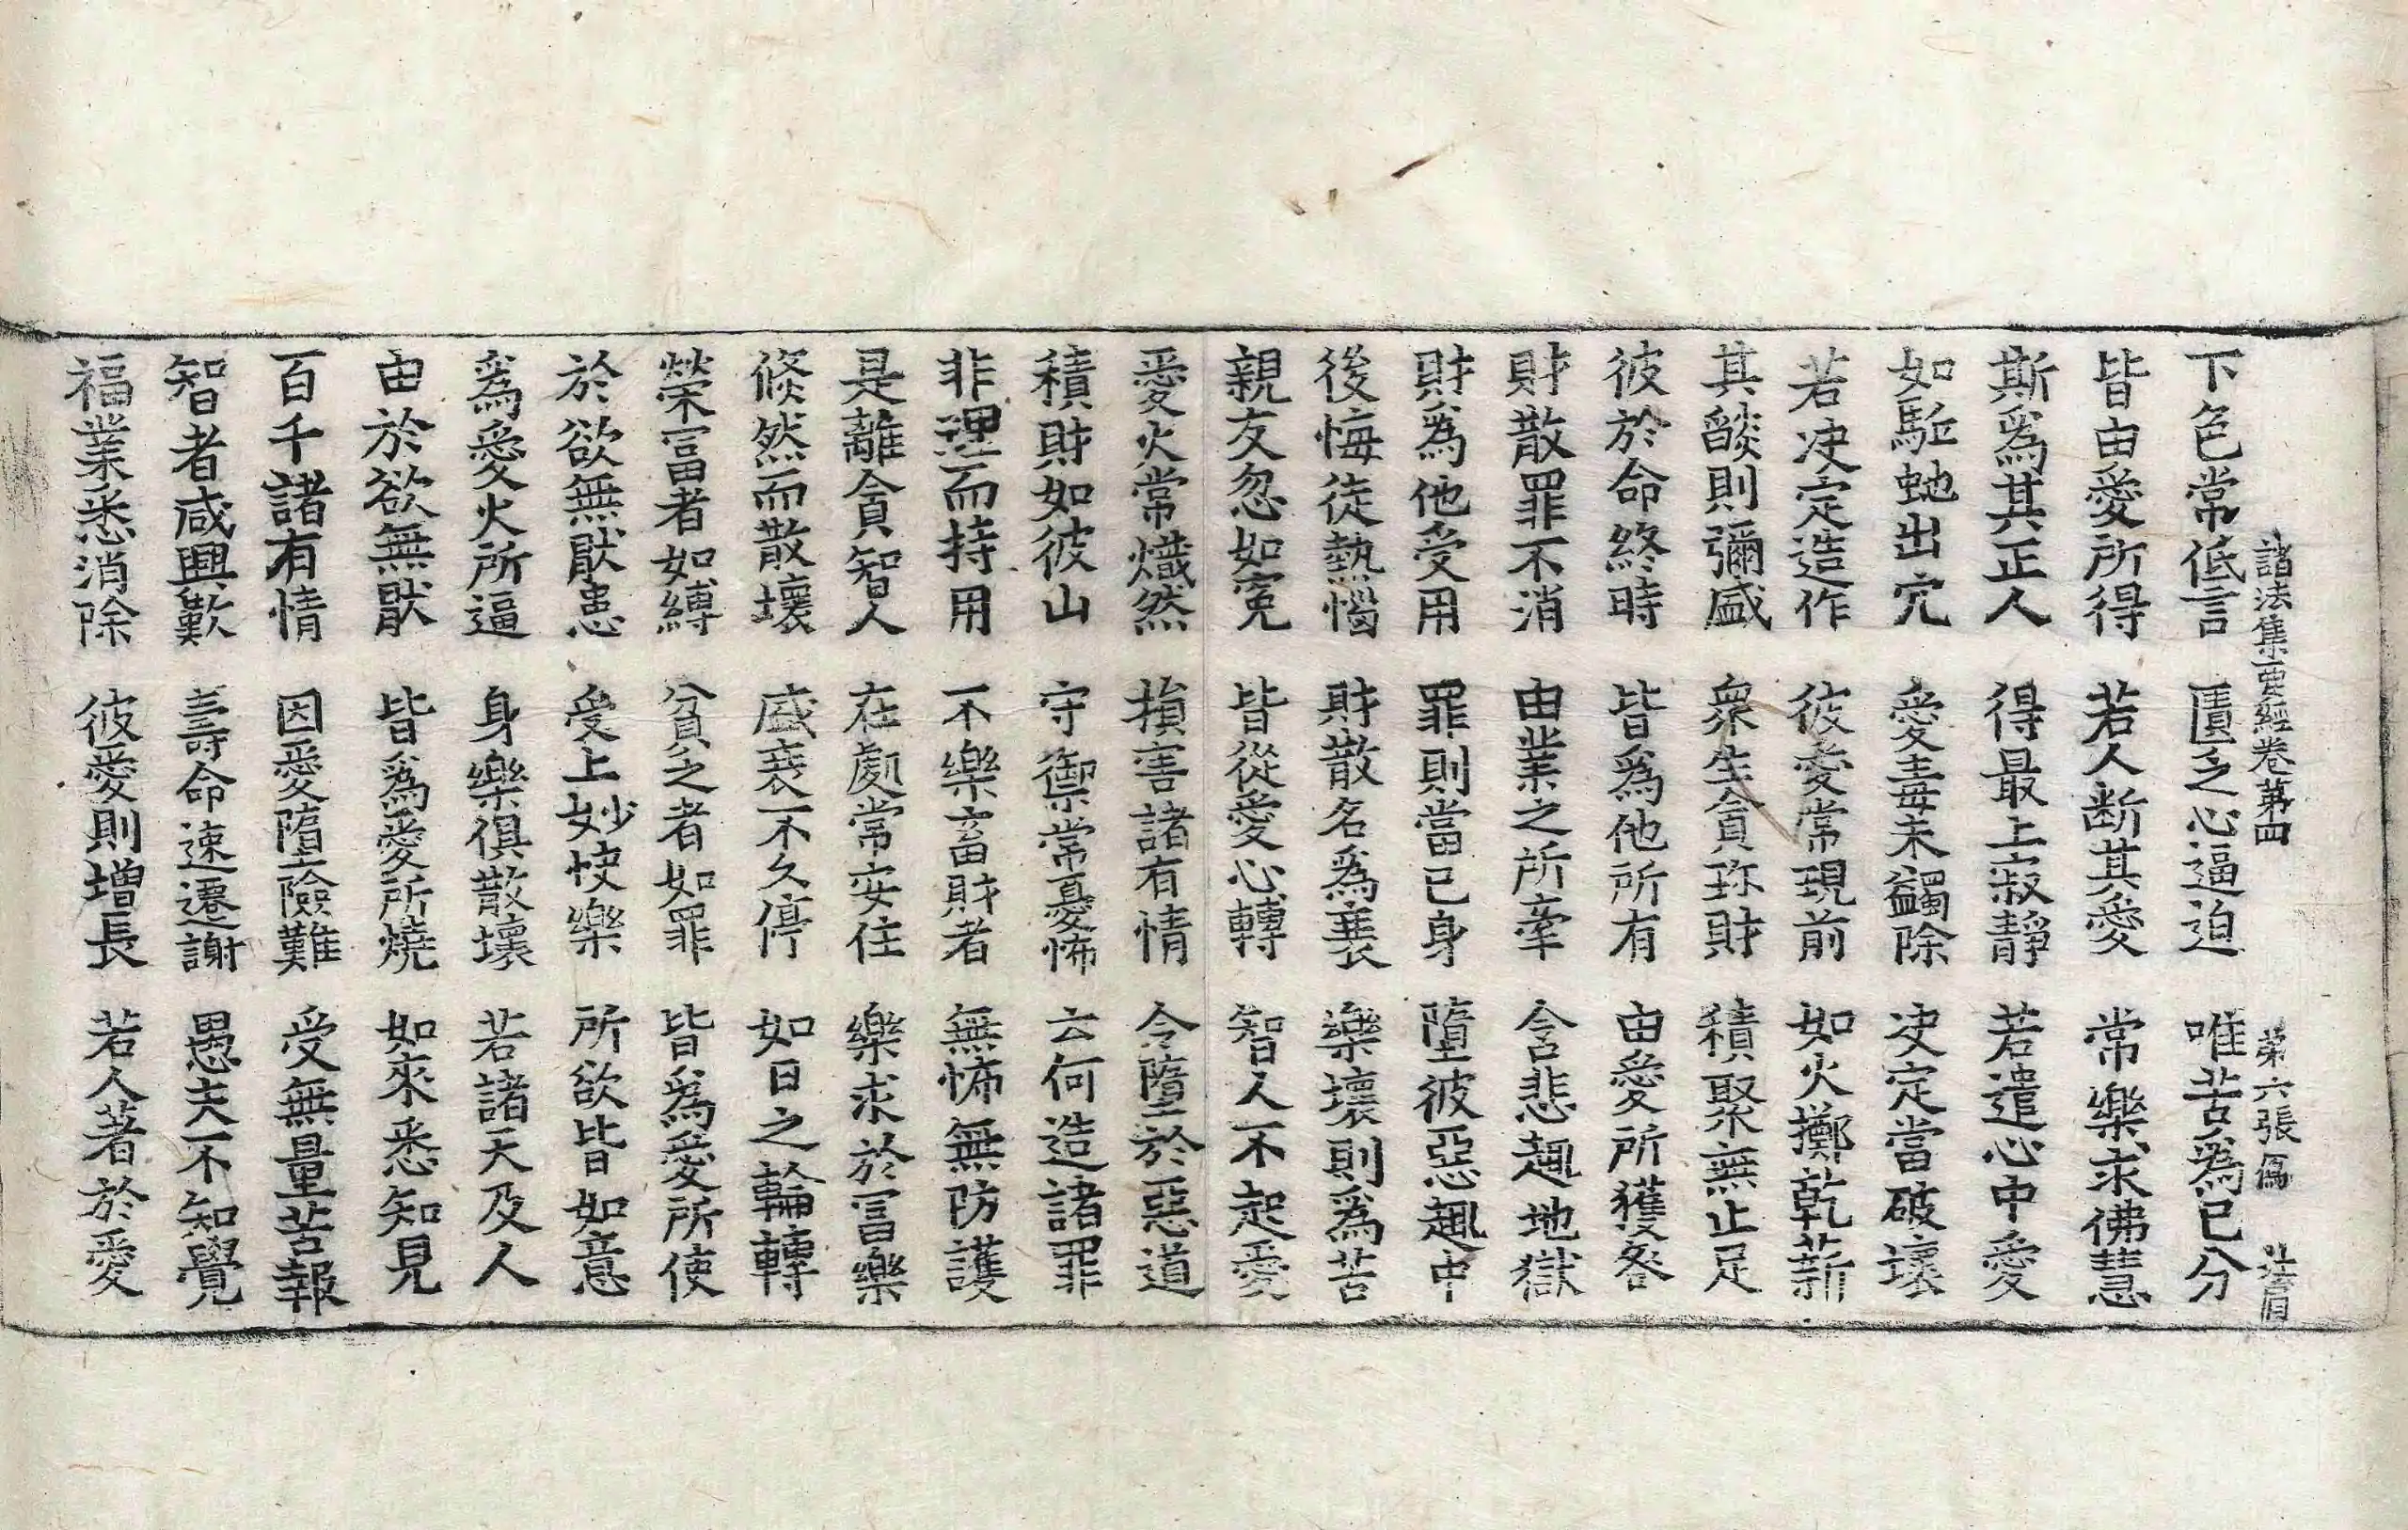 諸法集要經卷第四 第六張 傌
下色常低言 匱乏心逼迫 唯苦爲已分
皆由愛所得 若人断其愛 常樂求佛慧
斯爲其正人 得最上寂靜 若遣心中愛
如駈虵出穴 愛毒未蠲除 决定當破壞
若决定造作 彼愛常現前 如火擲乾薪
其燄則彌盛 衆生貪珎財 積聚無止足
彼於命終時 皆爲他所有 由愛所獲咎
財散罪不消 由業之所牽 含悲趣地獄
財爲他受用 罪則當已身 墮彼惡趣中
後悔徒熱惱 財散名爲衰 樂壞則爲苦
親友忽如寃 皆從愛心轉 智人不起愛
愛火常熾然 損害諸有情 令墮於惡道
積財如彼山 守禦常憂怖 云何造諸罪
非理而持用 不樂畜財者 無怖無防護
是離貪智人 在處常安住 樂求於冨樂
倐然而散壞 盛衰不久停 如日之輪轉
榮冨者如縛 貧乏者如罪 皆爲愛所使
於欲無猒患 受上妙快樂 所欲皆如意
爲愛火所逼 身樂俱散壞 若諸天及人
由於欲無猒 皆爲愛所燒 如來悉知見
百千諸有情 因愛墮險難 受無量苦報
智者咸興歎 壽命速遷謝 愚夫不知覺
福業悉消除 彼愛則增長 若人著於愛